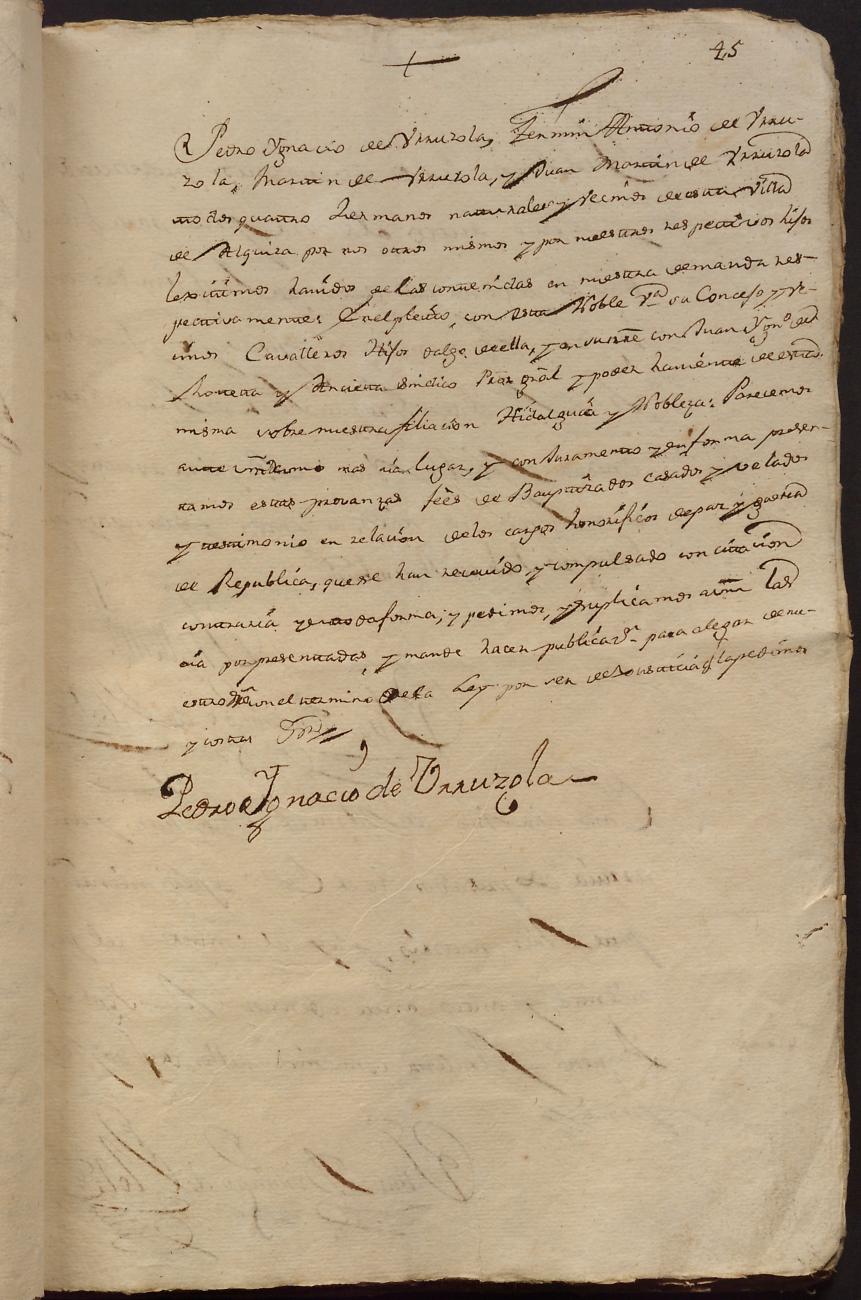 45
Pedro Ygnacio de Yrrurzola, Fermin Antonio de Yrru-
zola, Martin de Yrrurzola, y Juan Martin de Yrrurzola
todos quattro hermanos naturales y vecinos de esta Villa
de Alquiza por nos otros mismos y por nuestros respectivos hijos
lexitimos havidos de las contenidas en nuestra demanda res-
pectivamente; En el pleito con esta Noble Va. su Concejo y ve-
cinos Cavalleros Hijos dalgo de ella, y en su nre con Juan Ygno. de
y Ancieta sindico Pror gral y poder haviente de esta
misma sobre nuestra filiacion Hidalguia y Nobleza: Parecemos
ante Vm como mas aia lugar, y con Juramento y en forma presen-
tamos estas provanzas fees de Bauptizados casados y velados
y testimonio en relacion de los cargos honorificos de paz y guerra
de Republica, que se han recivido y compulsado con citacion
contraria y en toda forma; y pedimos, y suplicamos a Vm las
aia por presentadas, y mande hacer publicaon. para alegar de nu-
estro dro en el termino de la Ley por ser de Justicia q la pedimos
y costas
Pedro Ygnacio de Urruzola